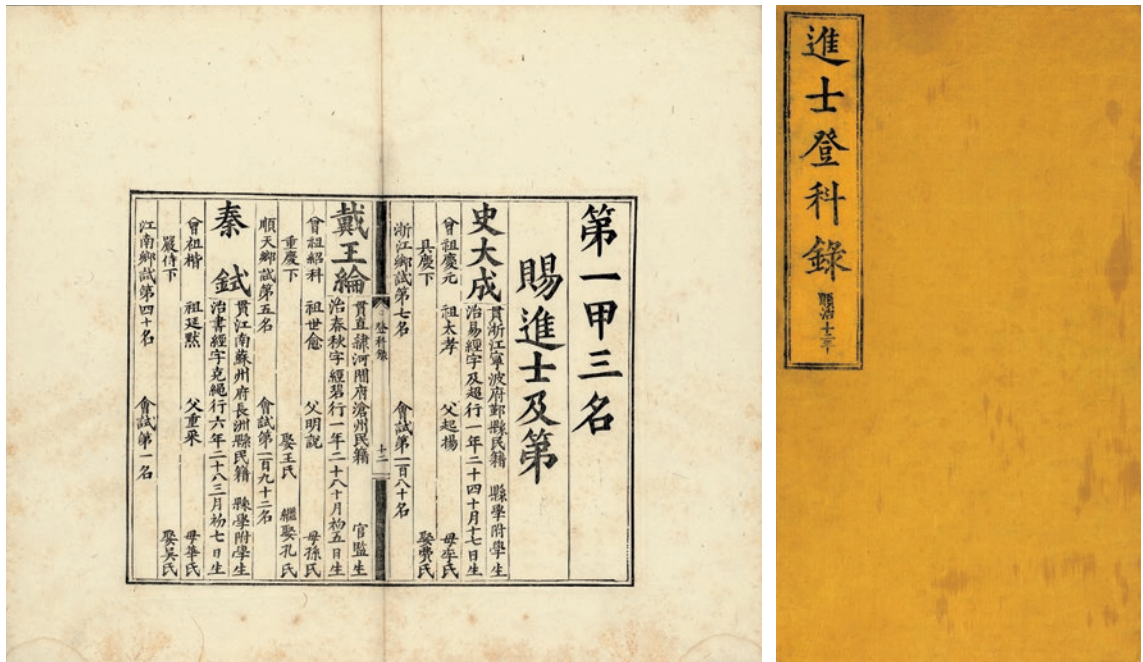 第一甲三名
賜進士及第
史大成
貫浙江寧波府鄞縣民籍 縣學附學生
治易經字及超行一年二十四十月十七日生
曾祖慶元 祖太孝 父起揚 母李氏
具慶下 娶費氏
浙江鄉試第七名 會試第一百八十名
登科錄 十二
戴王綸
貫直隸河間府滄州民籍 官監生
治春秋字經碧行一年二十八十月初五日生
曾祖紹科 祖世愈 父明說 母孫氏
重慶下 娶王氏 繼娶孔氏
順天鄉試第五名 會試第一百九十二名
秦鉽
貫江南蘇州府長洲縣民籍 縣學附學生
治書經字克繩行六年二十八三月初七日生
曾祖楷 祖廷默 父重采 母華氏
嚴侍下 娶吳氏
江南鄉試第四十名 會試第一名
進士登科錄
順治十二年